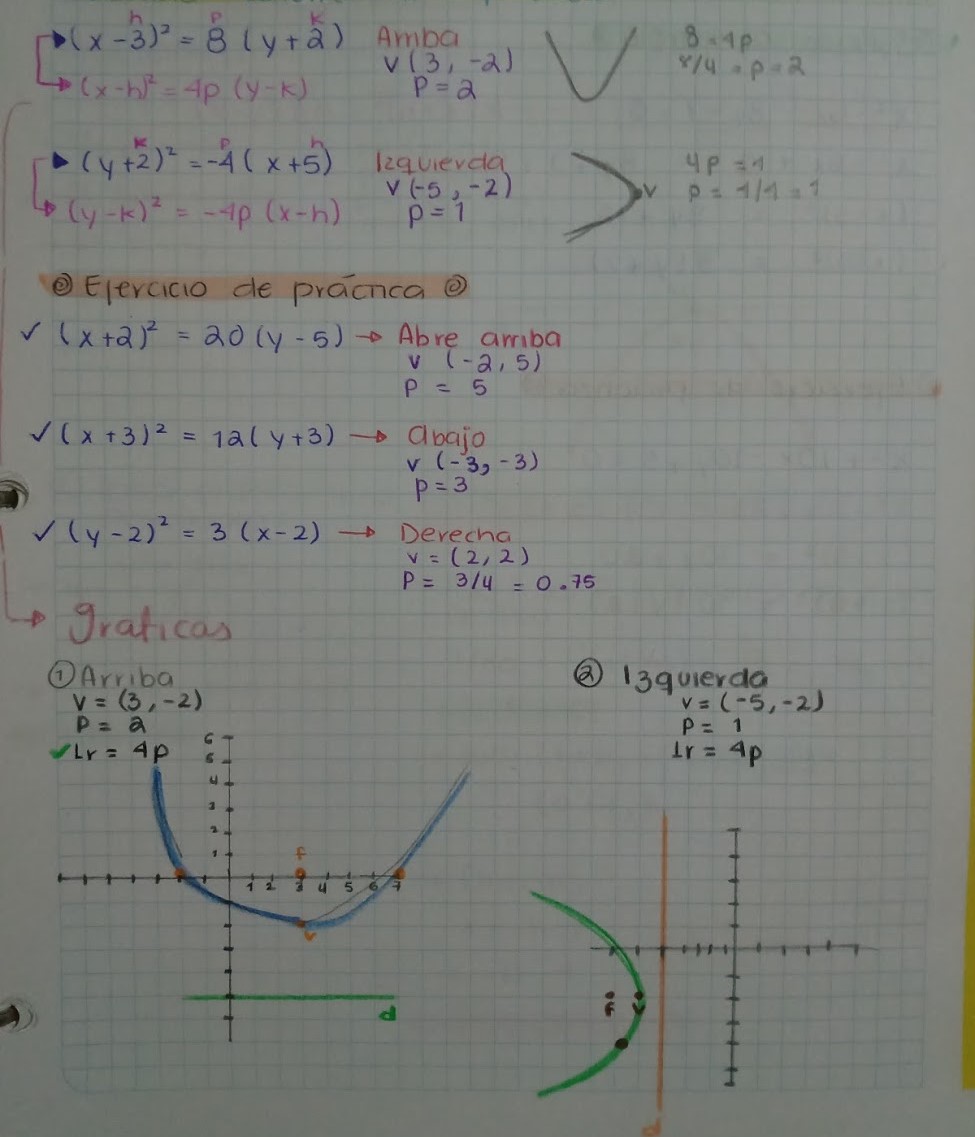 h p k
(x-3)² = 8 (y+2) Arriba 8=4p
v(3,-2) 8/4 = p = 2
(x-h)² = 4p (y-k) P=2
k p h
(y+2)² =-4(x+5) Izquierda 4p = 4
v(-5,-2) v p = 4/4 = 1
(y-k)² = -4p (x-h) p=1
Ejercicio de práctica
✓ (x+2)² = 20 (y-5) → Abre arriba
v (-2, 5)
p = 5
✓ (x+3)² = 12(y+3) → abajo
v (-3,-3)
p=3
✓ (y-2)² = 3 (x-2) → Derecha
v = (2, 2)
P = 3/4 = 0.75
→ graficas
① Arriba ② Izquierda
v = (3,-2) v = (-5,-2)
P = 2 P = 1
✓ Lr = 4p Lr = 4p
6
5
4
3
2
1 f
1 2 3 4 5 6 7
v
f v
d
d